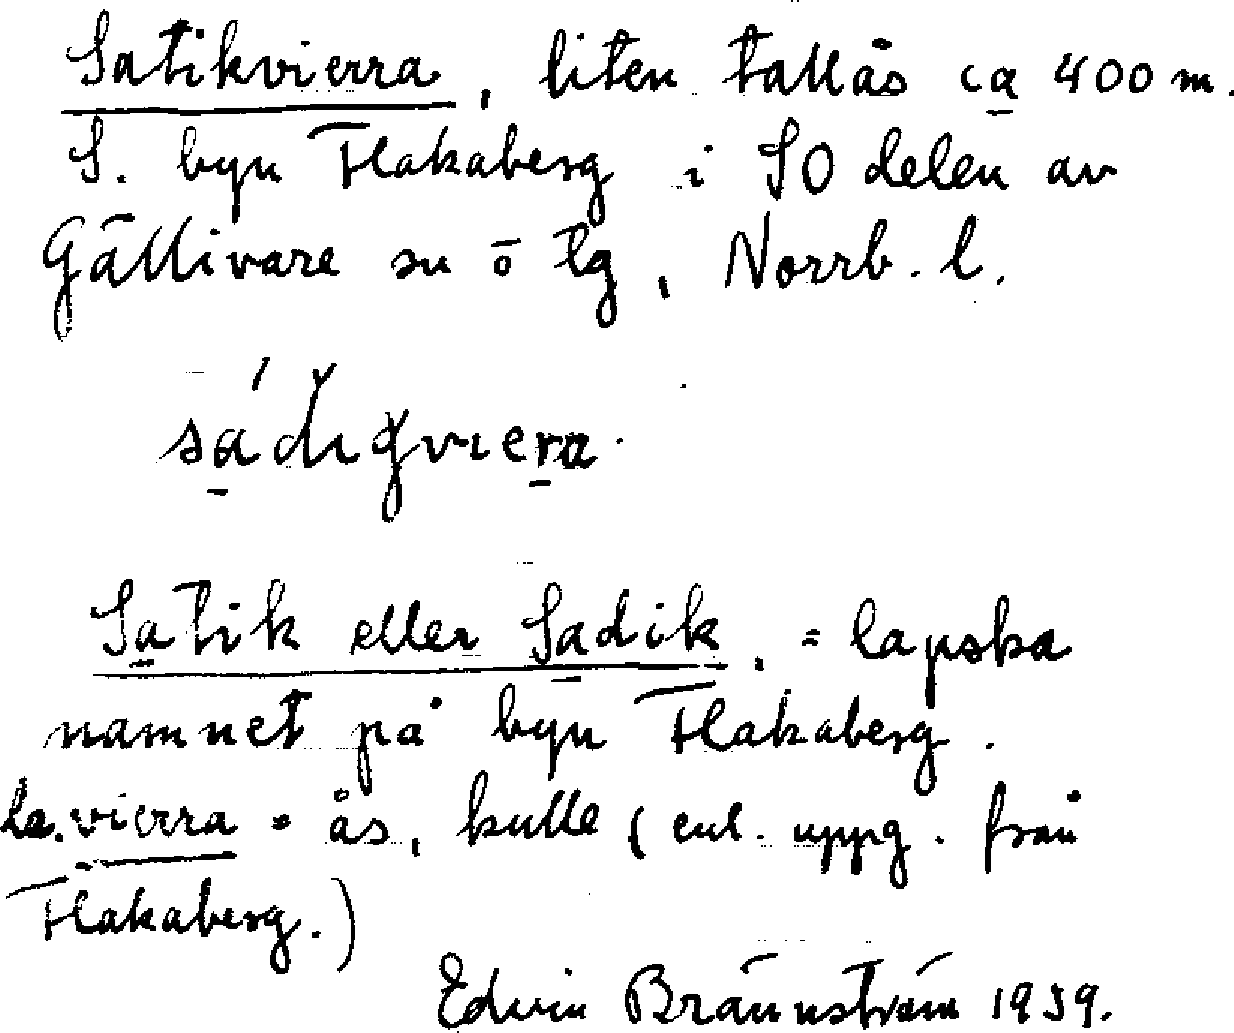 Satikvierra, liten tallås ca 400 m.
S. byn Flakaberg i SO delen av
Gällivare sn o tg, Norrb. l.
Satik eller Sadik, = lapska
namnet på byn Flakaberg.
la. vierra = ås, kulle (enl. uppg. från
Flakaberg.)
Edvin Brännström 1939.